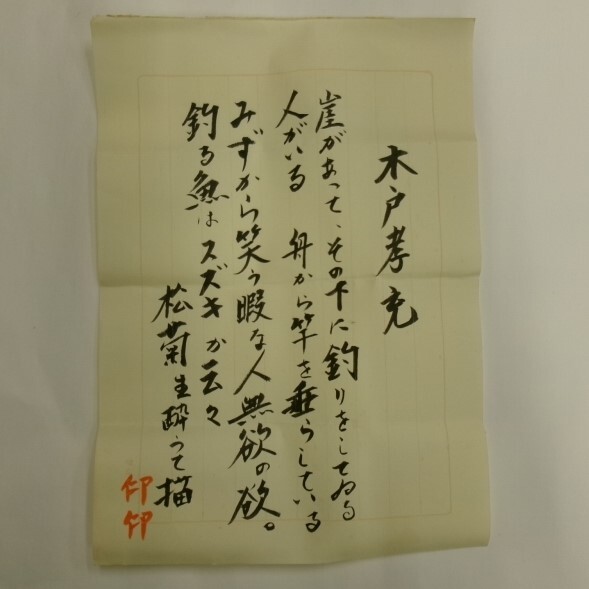 木戸孝充
崖があって、その下に釣りをしてゐる
人がいる 舟から竿を垂らしている
みずから笑う暇な人無欲の欲。
釣る魚はスズキか云々
松菊生酔うて描
印
印